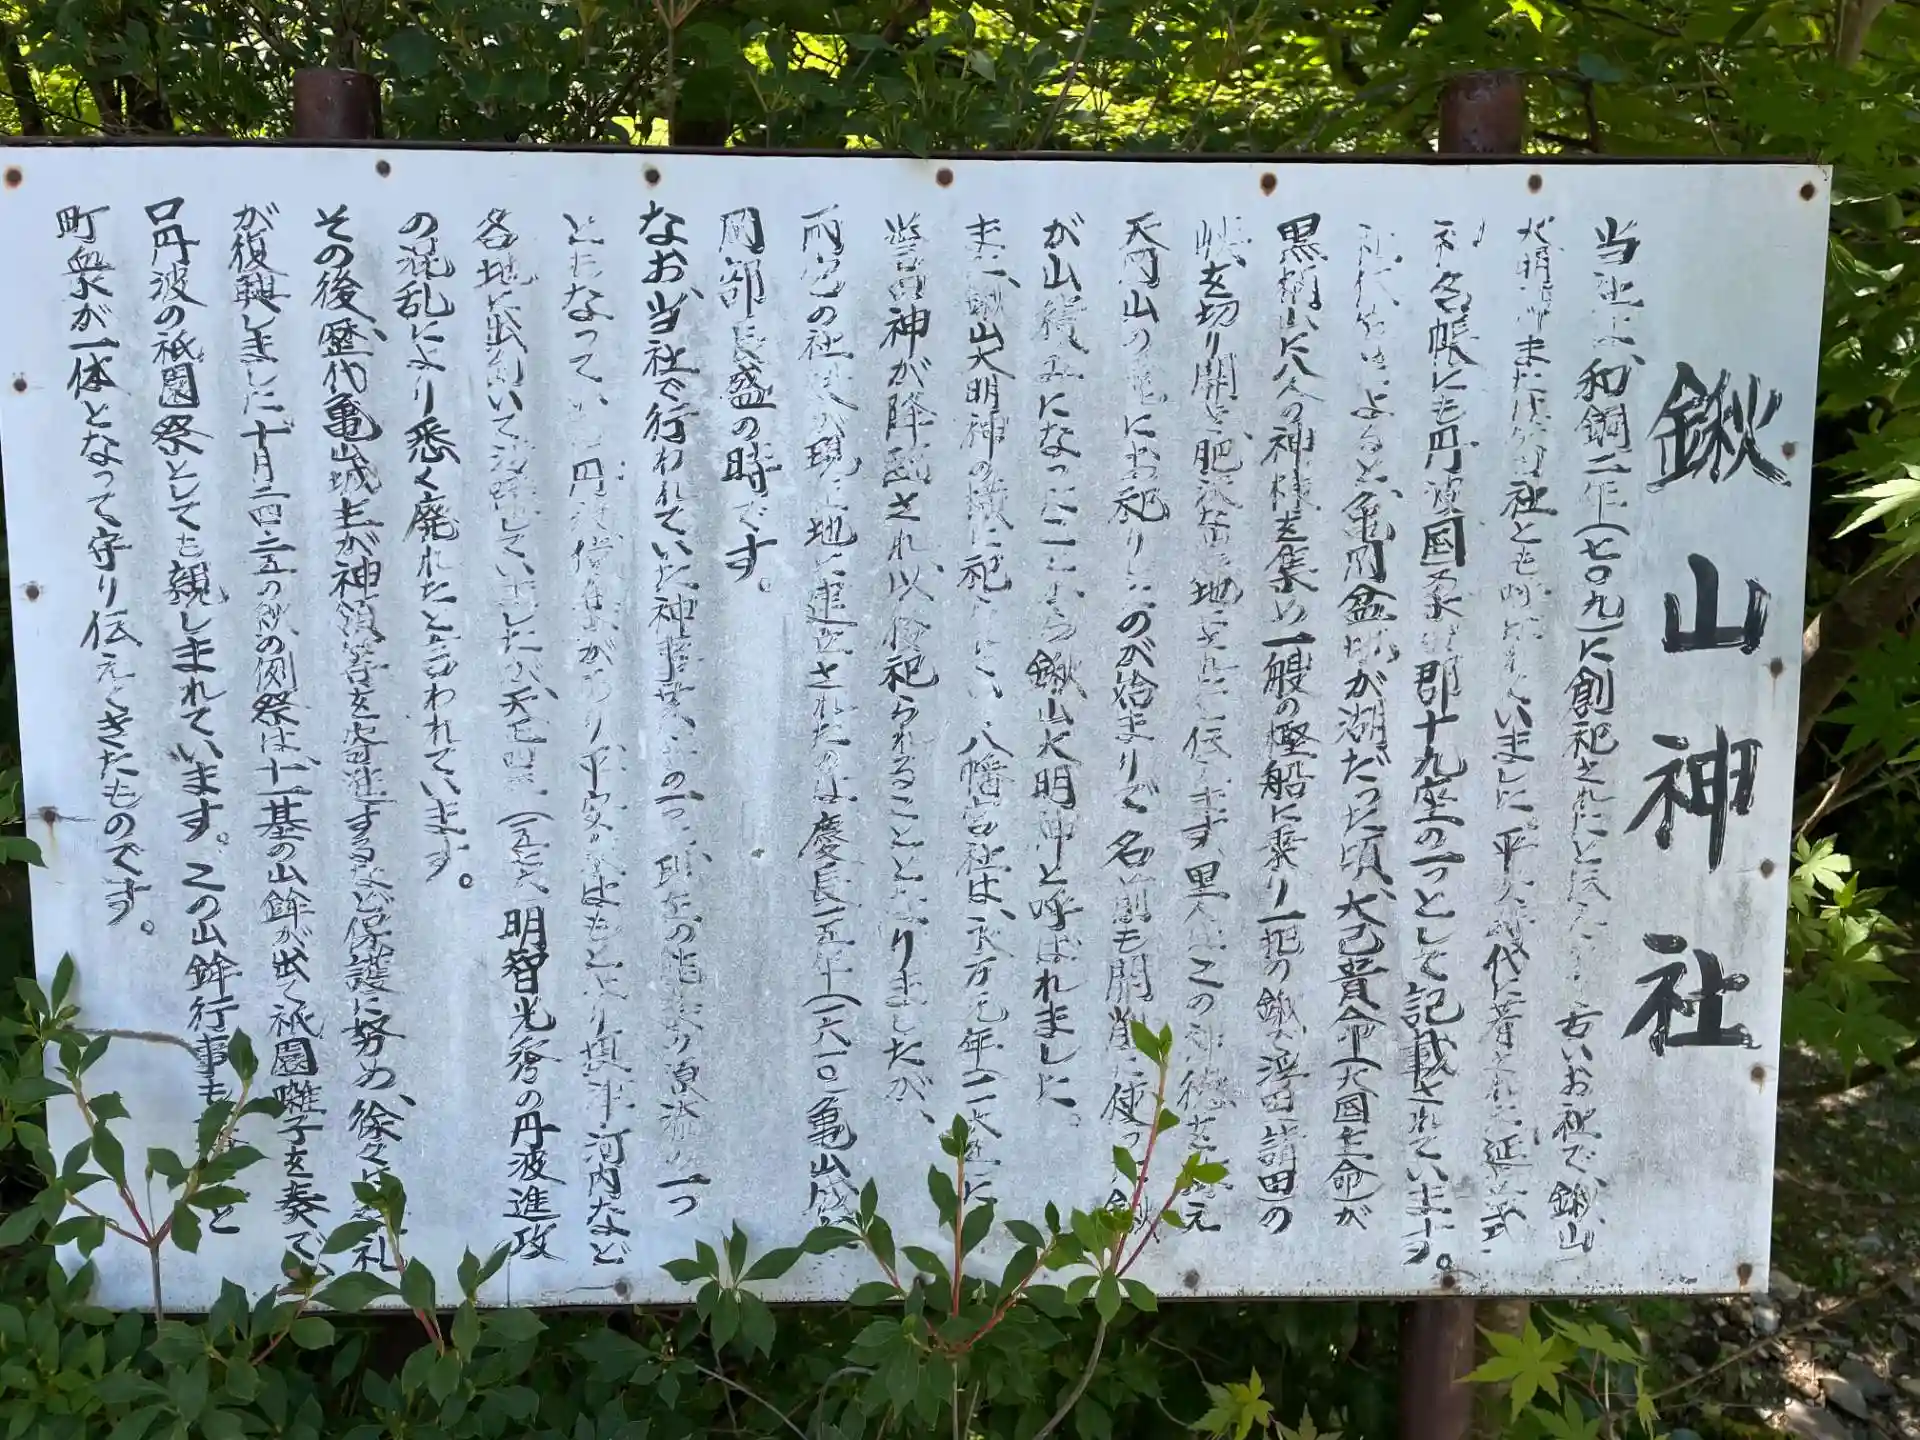 鍬山神社
当社は、和銅二年(七〇九)に創祀されたと伝えられる古いお社で、鍬山
大明神また 社とも呼ばれていました。平安時代に著された延喜式
神名帳にも丹波国桑田郡十九座の一つとして記載されています。
によると、亀岡盆地が湖だった頃、大己貴命(大国主命)が
黒柄山に八人の神様を集め一艘の樫船に乗り一把の鍬で浮田(請田)の
峡を切り開き肥沃な土地にしたと伝えます。里人はこの神徳を
天岡山の麓にお祀りしたのが始まりで、名前も開削に使った鍬
が山積みになったことから鍬山大明神と呼ばれました。
また、鍬山大明神の横に祀 八幡宮社は、永万元年(一一六五)に
誉田神が降臨され、以後祀られることとなりましたが、
両宮の社 が現在地に建立されたのは慶長一五年(一六一〇)亀山城主
岡部長盛の時です。
なお、当社で行われていた神事 の一つ、現在の能楽の源流の一つ
ともなっている丹波猿楽があり、平安 はもとより摂津・河内など
各地に出向いて していましたが、天正四年(一五七六)明智光秀の丹波進攻
の混乱により悉く廃れたと言われています。
その後、歴代亀山城主が神領等を寄進するなど保護に努め、徐々に祭礼
が復興しました。十月二四・二五の秋の例祭は、十一基の山鉾が出て祇園囃子を奏で、
口丹波の祇園祭としても親しまれています。この山鉾行事も
町衆が一体となって守り伝えてきたものです。